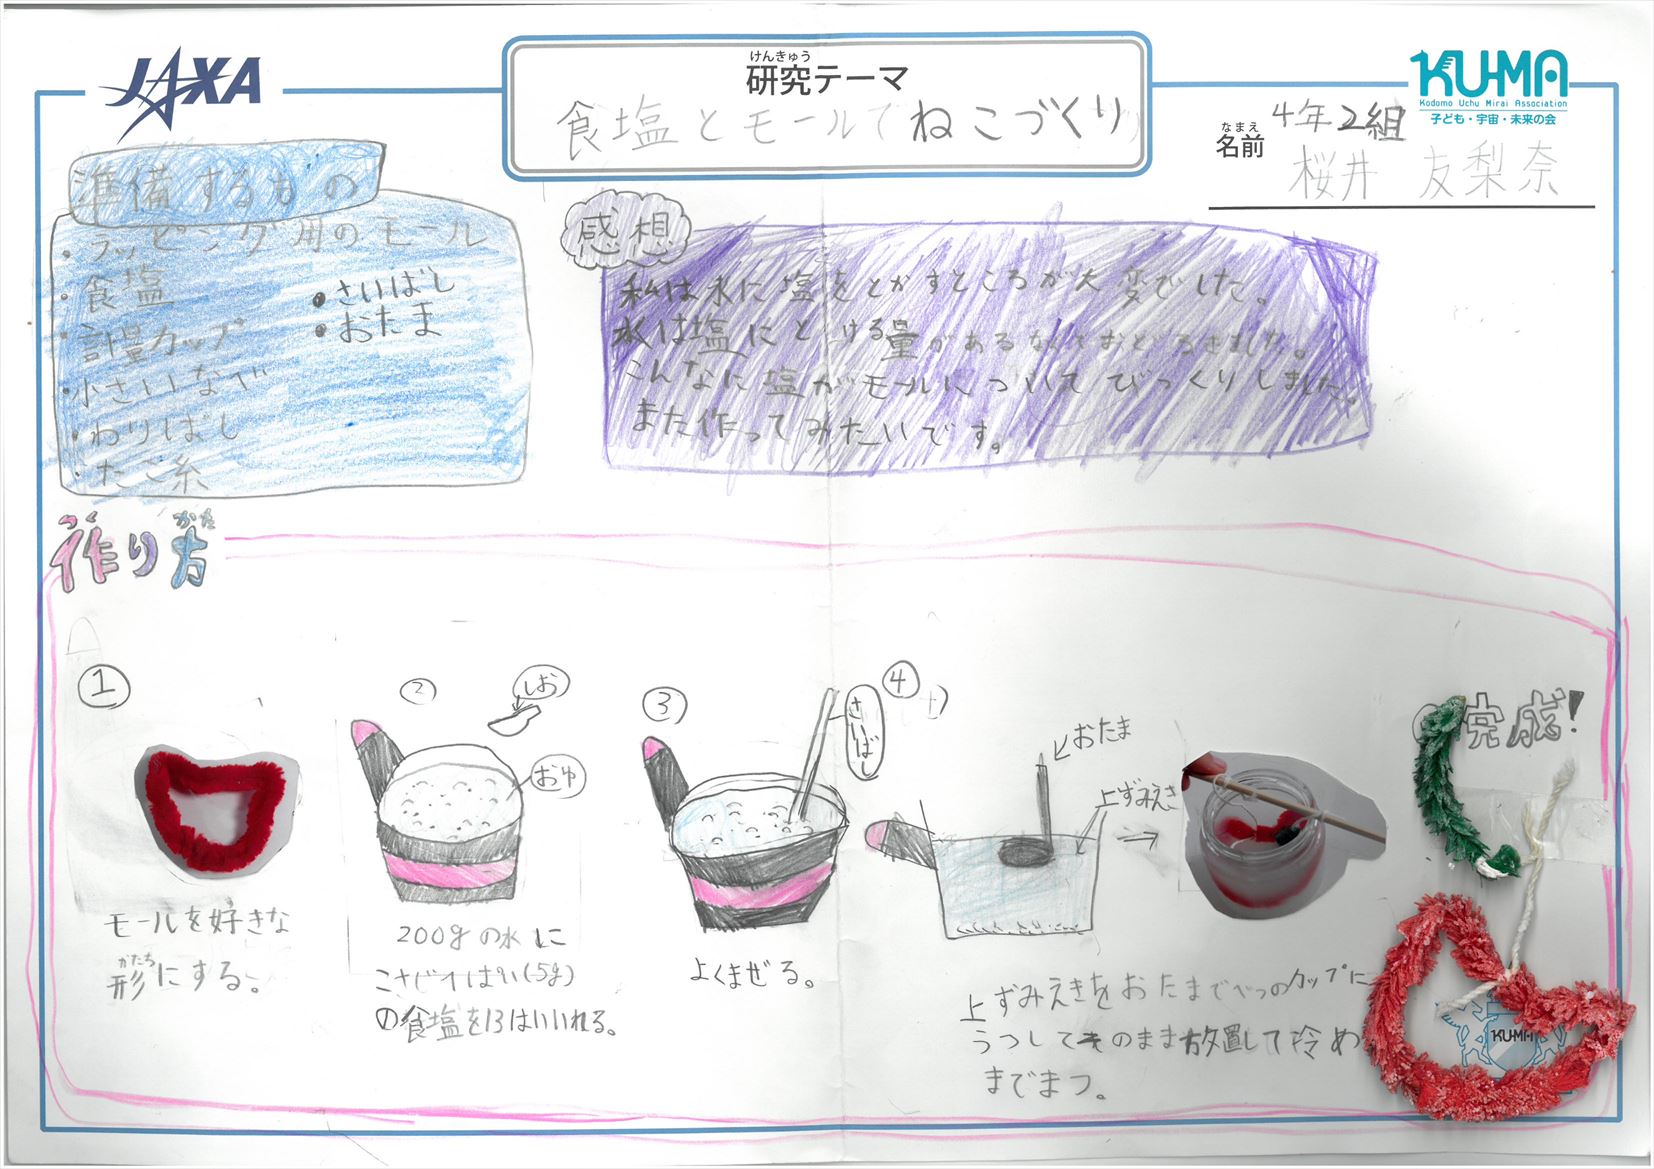 JAXA
けんきゅう
研究テーマ
食塩とモールでねこづくり
KU-MA
Kodomo Uchu Mirai Association
子ども・宇宙・未来の会
なまえ
名前
4年2組
桜井 友梨奈
準備するもの
・ラッピング用のモール
・食塩
・計量カップ
・小さいなべ
・わりばし
・たこ糸
・さいばし
・おたま
感想
私は水に塩をとかすところが大変でした。
水は塩にとける量があるなんておどろきました。
こんなに塩がモールについてびっくりしました。
また作ってみたいです。
つく かた
作り方
①
モールを好きな
かたち
形にする。
②
しお
おゆ
200gの水に
こさじ1ぱい(5g)
の食塩を13はいいれる。
③
さいばし
よくまぜる。
④
おたま
上ずみえき
上ずみえきをおたまでべつのカップに
うつしてそのまま放置して冷め
までまつ。
完成!
KU-MA